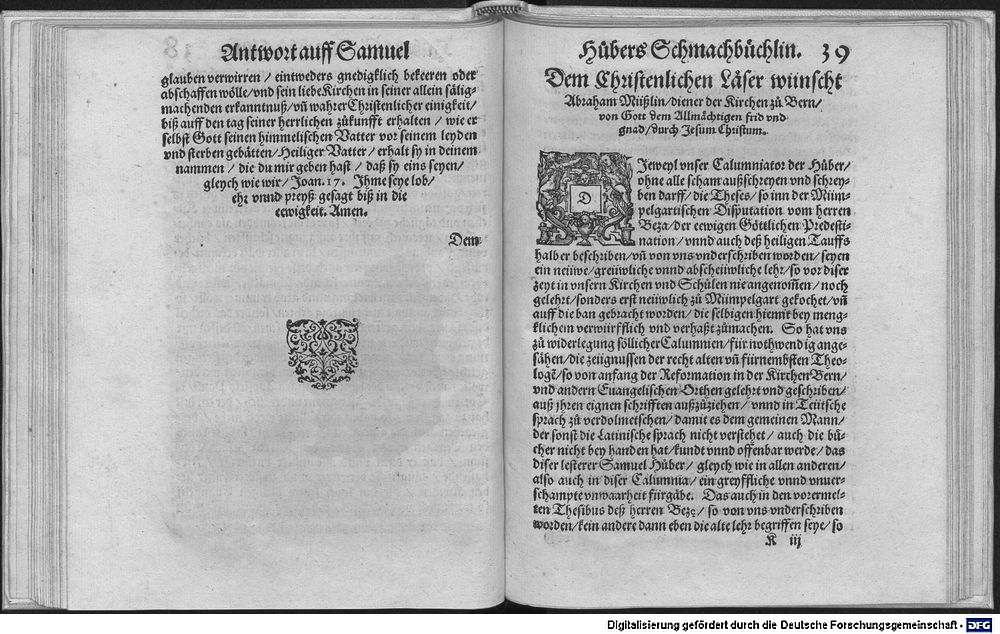 Antwort auff Samuel
glauben verwirren / eintweders gnedigklich bekeeren oder
abschaffen wölle / vnd sein liebe Kirchen in seiner allein sälig-
machenden erkanntnuß / vñ wahrer Christenlicher einigkeit /
biß auff den tag seiner herrlichen zůkunfft erhalten / wie er
selbst Gott seinen himmelischen Vatter vor seinem leyden
vnd sterben gebätten / Heiliger Vatter / erhalt sy in deinem
nammen / die du mir geben hast / daß sy eins seyen /
gleych wie wir / Joan. 17. Ihme seye lob /
ehr vnnd preyß gesagt biß in die
eewigkeit. Amen.
Dem
Hůbers Schmachbüchlin. 39
Dem Christenlichen Läser wünscht
Abraham Müßlin / diener der Kirchen zů Bern /
von Gott dem Allmächtigen frid vnd
gnad / durch Jesum Christum.
DJeweyl vnser Calumniator der Hůber /
ohne alle scham außschreyen vnd schrey-
ben darff / die Theses / so inn der Müm-
pelgartischen Disputation vom herren
Beza / der eewigen Göttlichen Predesti-
nation / vnnd auch deß heiligen Tauffs
halber beschriben / vñ von vns vnderschriben worden / seyen
ein neüwe / greüwliche vnnd abscheüwliche lehr / so vor diser
zeyt in vnsern Kirchen vnd Schůlen nie angenom̃en / noch
gelehrt / sonders erst neüwlich zů Mümpelgart gekochet / vñ
auff die ban gebracht worden / die selbigen hiemit bey meng-
klichem verwürfflich vnd verhaßt zůmachen. So hat vns
zů widerlegung söllicher Calumnien / für nothwendig ange-
sähen / die zeügnussen der recht alten vñ fürnembsten Theo-
logē / so von anfang der Reformation in der Kirchen Bern /
vnd andern Euangelischen Orthen gelehrt vnd geschriben /
auß jhren eignen schrifften außzůziehen / vnnd in Teütsche
sprach zů verdolmetschen / damit es dem gemeinen Mann /
der sonst die Latinische sprach nicht verstehet / auch die bü-
cher nicht bey handen hat / kundt vnnd offenbar werde / das
diser lesterer Samuel Hůber / gleych wie in allen anderen /
also auch in diser Calumnia / ein greyffliche vnnd vnuer-
schampte vnwaarheit fürgäbe. Das auch in den vorermel-
ten Thesibus deß herren Bezę / so von vns vnderschriben
worden / kein andere dann eben die alte lehr begriffen seye / so
K iij
Digitalisierung gefördert durch die Deutsche Forschungsgemeinschaft - DFG